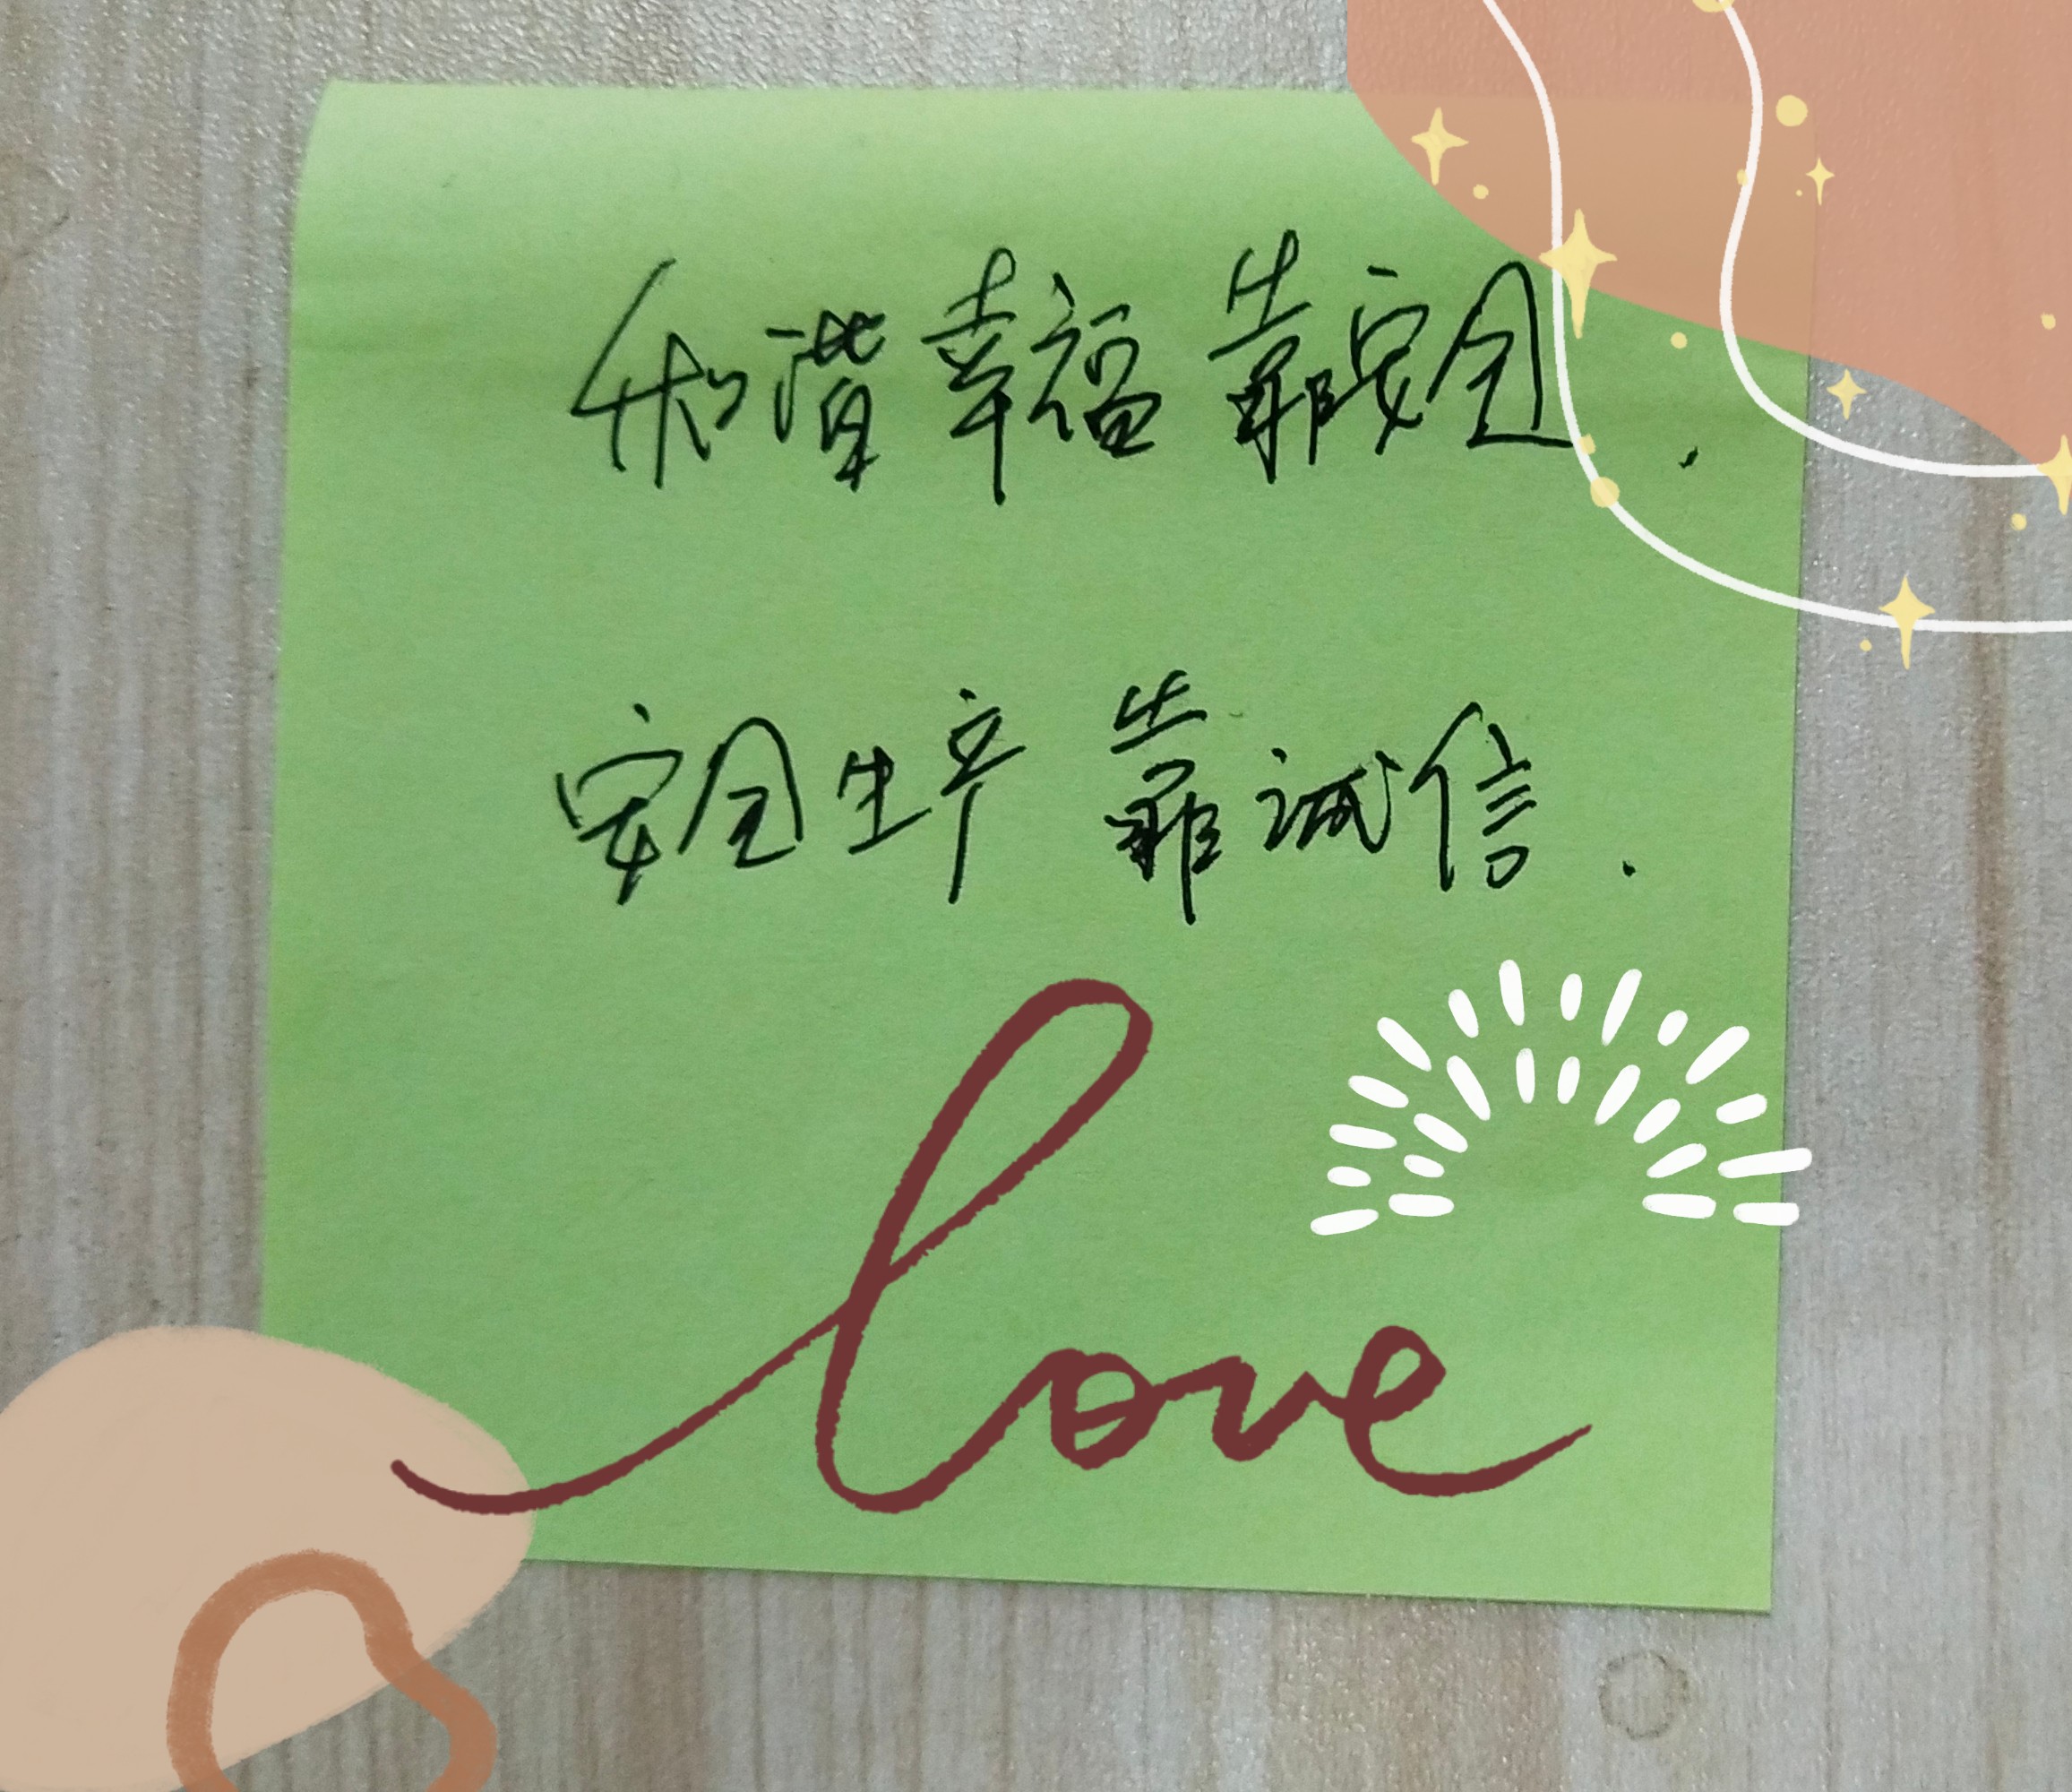 和谐幸福靠安全.
安全生产靠诚信.
love